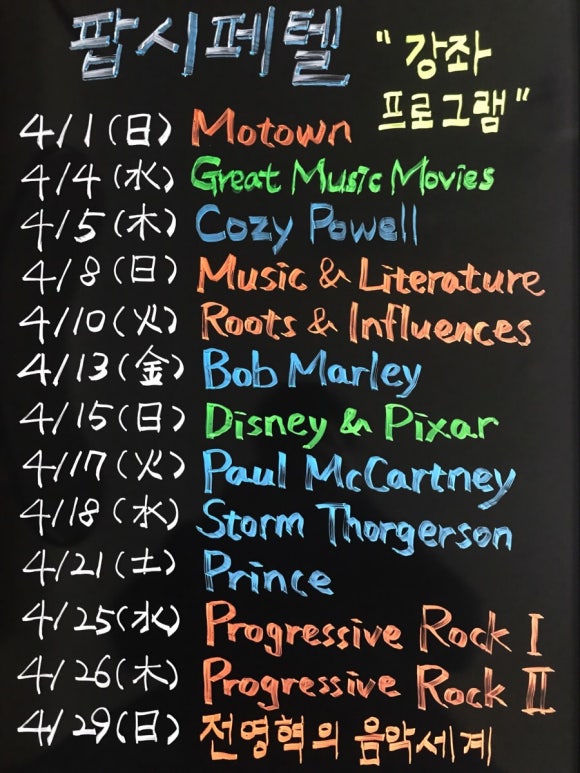 팝시페텔 "강좌
프로그램"
4/1(日) Motown
4/4(水) Great Music Movies
4/5(木) Cozy Powell
4/8(日) Music & Literature
4/10(火) Roots & Influences
4/13(金) Bob Marley
4/15(日) Disney & Pixar
4/17(火) Paul McCartney
4/18(水) Storm Thorgerson
4/21(土) Prince
4/25(水) Progressive Rock I
4/26(木) Progressive Rock II
4/29(日) 전영혁의 음악세계